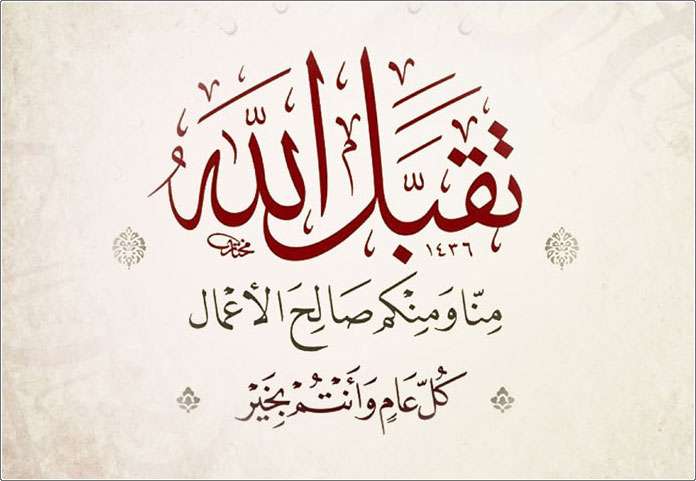 تَقَبَّلَ اللهُ
١٤٣٦
مِنّا وَمِنْكُم صَالِحَ الأَعْمَال
كُلّ عَامٍ وَأَنْتُمْ بِخَيْر